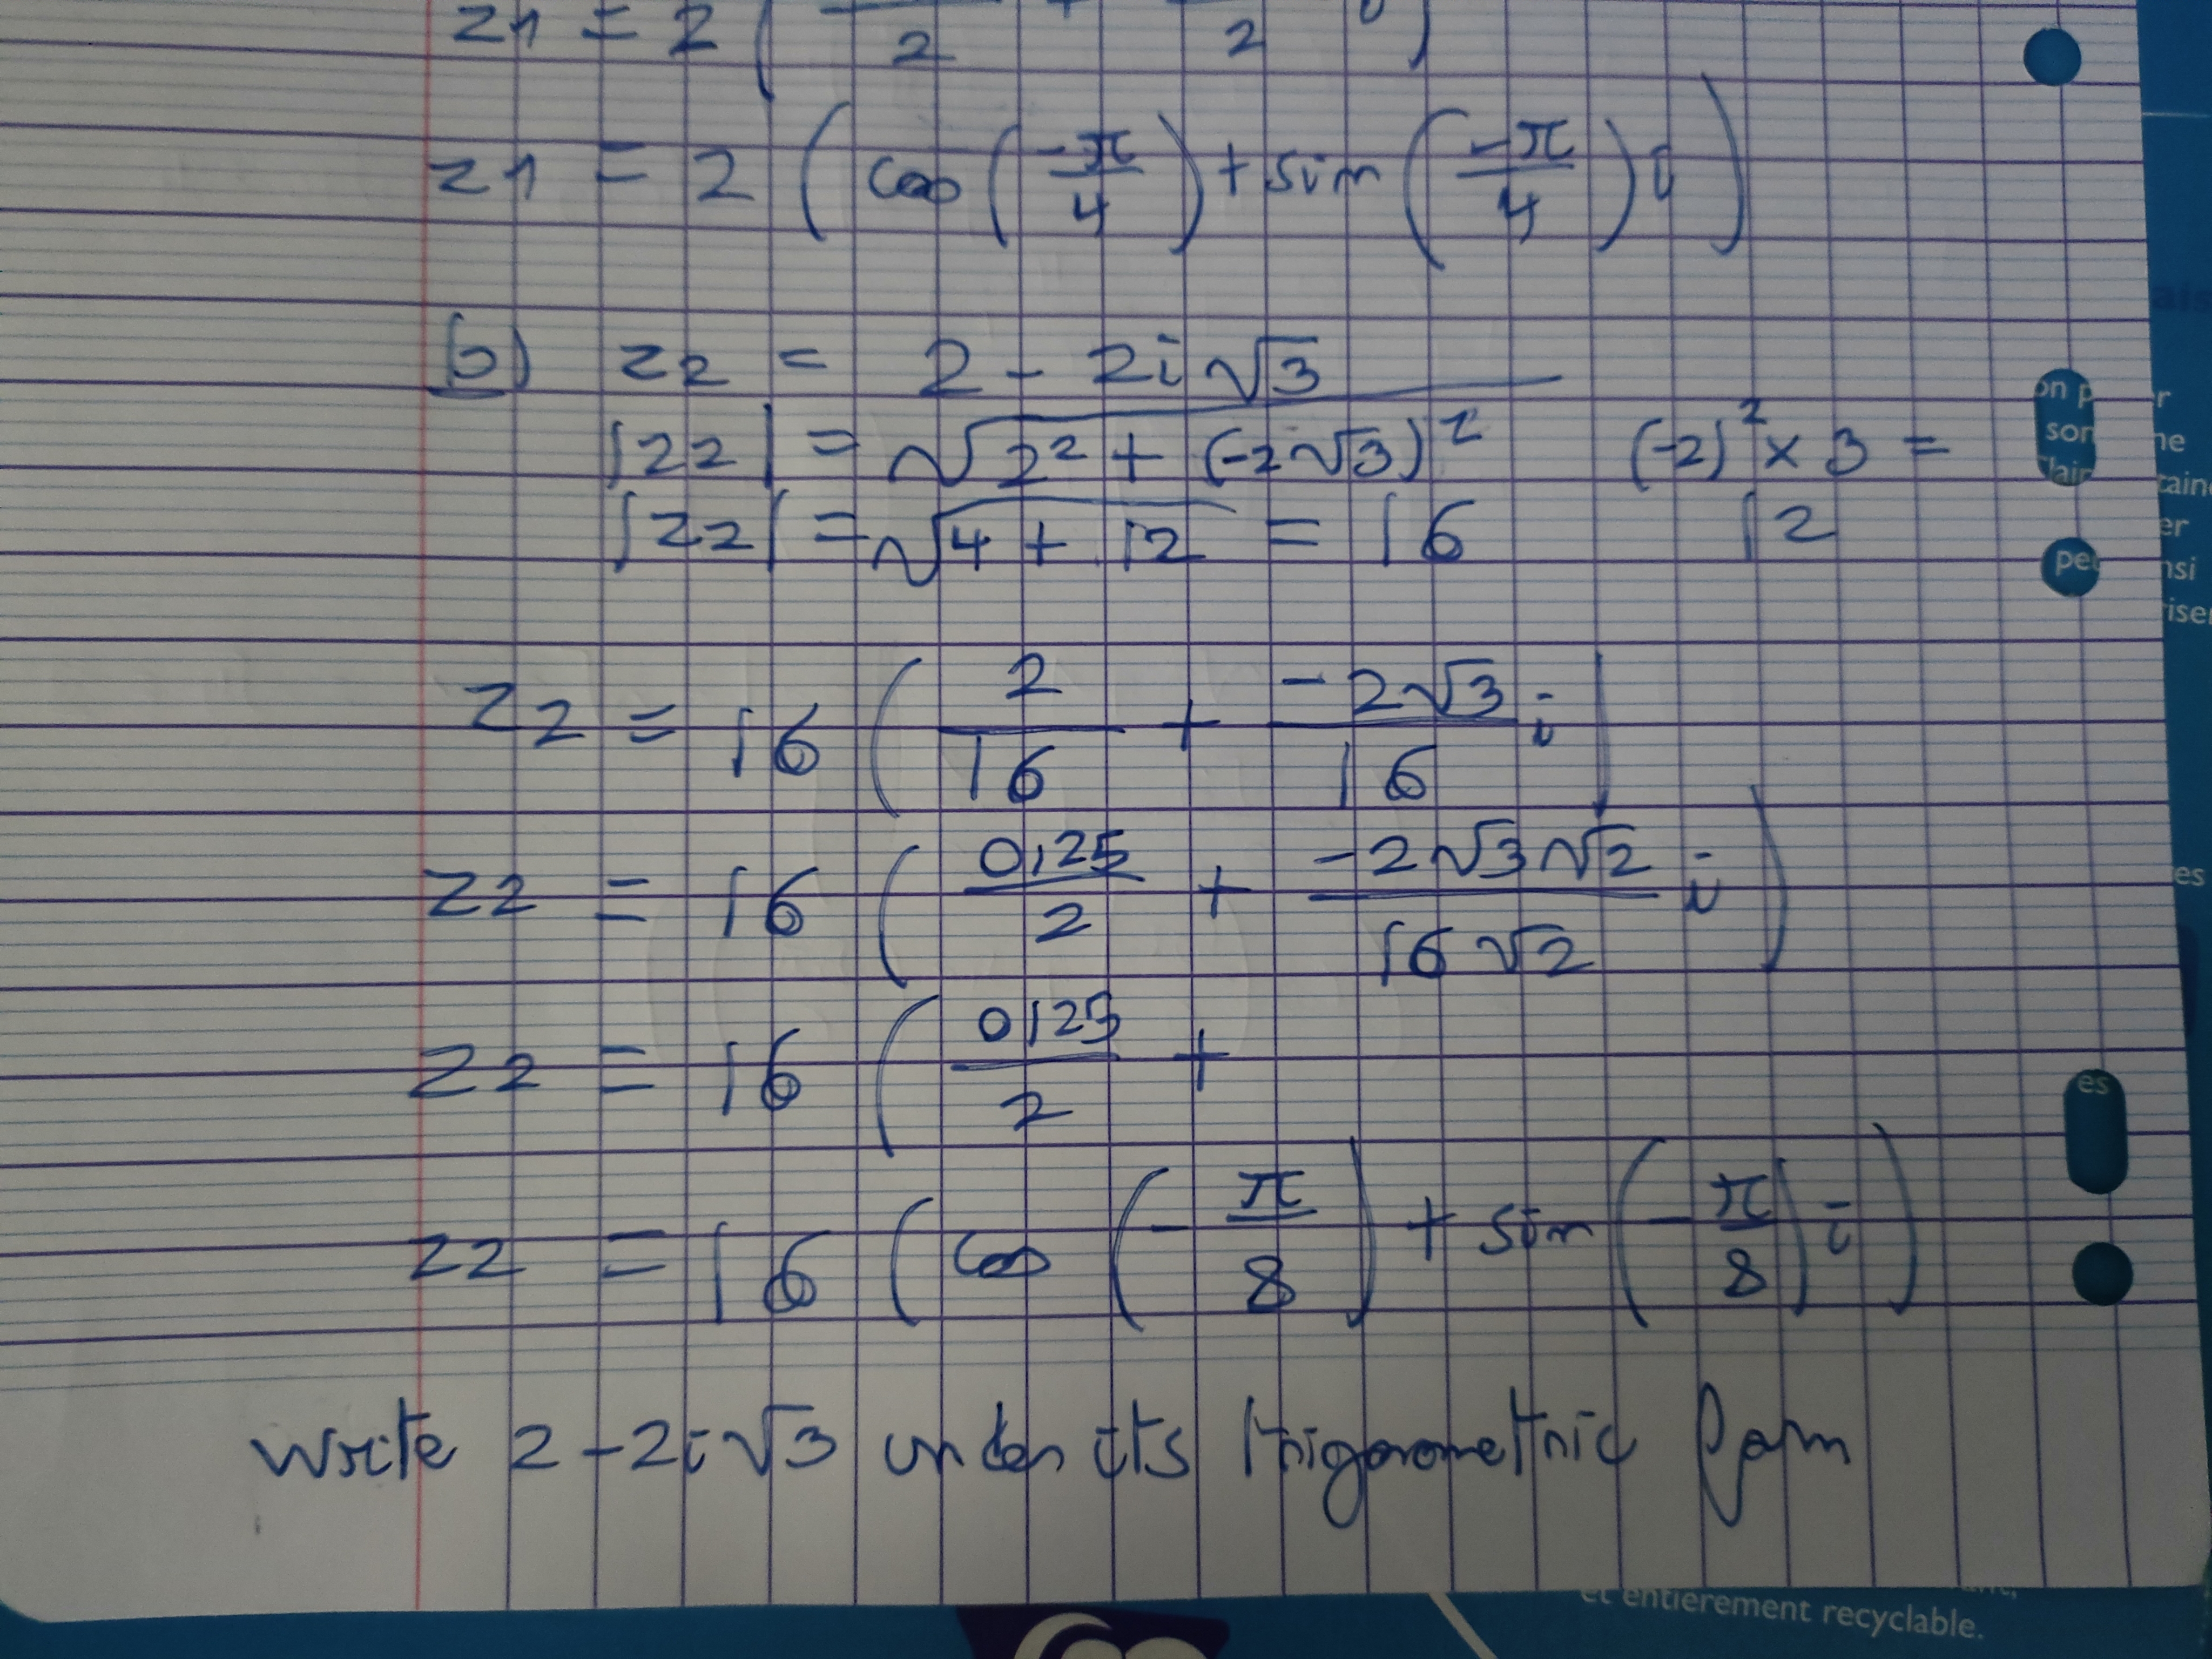 z1 = 2 ( 2 + 2 i )
z1 = 2 ( cos ( -π/4 ) + sin ( -π/4 ) i )
b) z2 = 2 - 2i√3
|z2| = √(2² + (-2√3)²) (-2)² × 3 =
|z2| = √(4 + 12) = 16 12
z2 = 16 ( 2/16 + -2√3/16 i )
z2 = 16 ( 0,125/2 + -2√3√2/16√2 i )
z2 = 16 ( 0,125/2 +
z2 = 16 ( cos ( - π/8 ) + sin ( - π/8 ) i )
write 2 - 2i√3 under its trigonometric form
on p
son
clair
pe
es
ais
r
ne
er
nsi
es
et entierement recyclable.